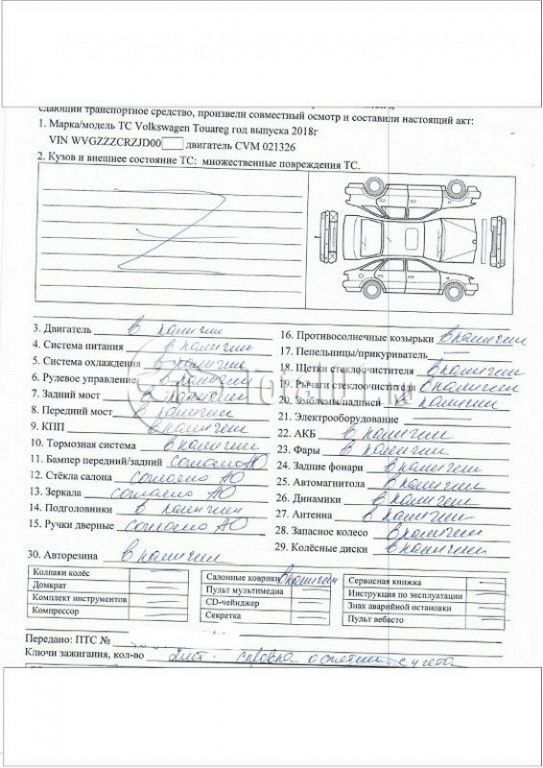 сдающий транспортное средство, произвели совместный осмотр и составили настоящий акт:
1. Марка/модель ТС Volkswagen Touareg год выпуска 2018г
VIN WVGZZZCRZJD00 двигатель CVM 021326
2. Кузов и внешнее состояние ТС: множественные повреждения ТС.
3. Двигатель в наличии
4. Система питания в наличии
5. Система охлаждения в наличии
6. Рулевое управление в наличии
7. Задний мост в наличии
8. Передний мост в наличии
9. КПП в наличии
10. Тормозная система в наличии
11. Бампер передний/задний согласно АО
12. Стёкла салона согласно АО
13. Зеркала согласно АО
14. Подголовники в наличии
15. Ручки дверные согласно АО
16. Противосолнечные козырьки в наличии
17. Пепельницы/прикуриватель —
18. Щетки стеклоочистителя в наличии
19. Рычаги стеклоочистителя в наличии
20. Эмблемы/надписи в наличии
21. Электрооборудование —
22. АКБ в наличии
23. Фары в наличии
24. Задние фонари в наличии
25. Автомагнитола в наличии
26. Динамики в наличии
27. Антенна в наличии
28. Запасное колесо в наличии
29. Колёсные диски в наличии
30. Авторезина в наличии
Колпаки колёс —
Домкрат —
Комплект инструментов —
Компрессор —
Салонные коврики в наличии
Пульт мультимедиа —
CD-чейнджер —
Секретка —
Сервисная книжка —
Инструкция по эксплуатации —
Знак аварийной остановки —
Пульт вебасто —
Передано: ПТС №
Ключи зажигания, кол-во справка о снятии с учета